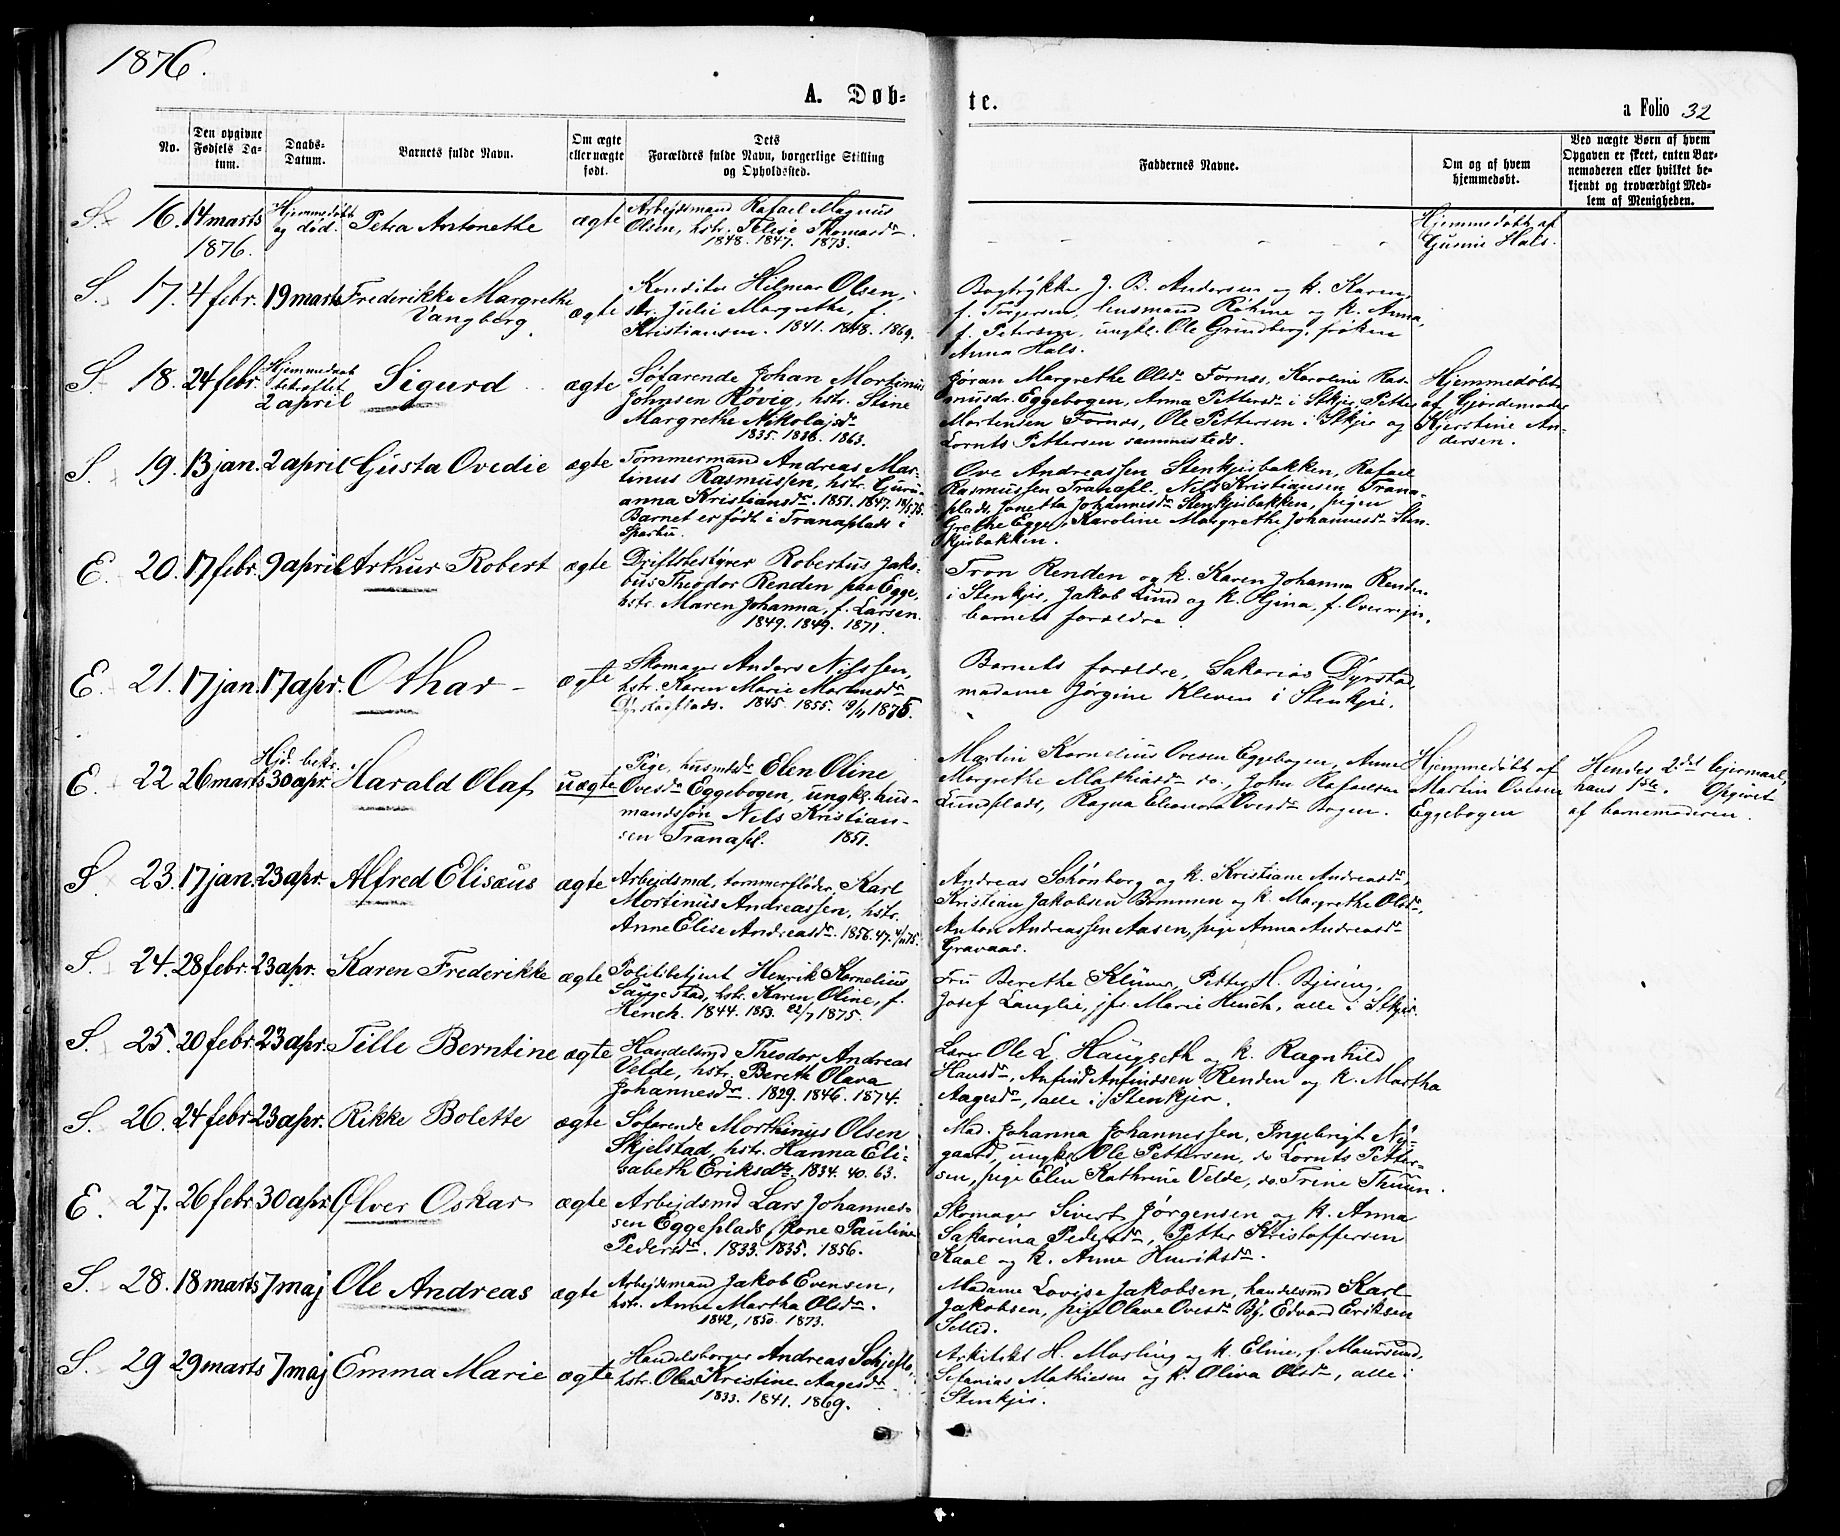 1876.
A. Døb-
te.
a Folio 32
No.
Den opgivne
Fødsels Da-
tum.
Daabs-
Datum.
Barnets fulde Navn.
Om ægte
eller uægte
født.
Dets
Forældres fulde Navn, borgerlige Stilling
og Opholdssted.
Faddernes Navne.
Om og af hvem
hjemmedøbt.
Ved uægte Børn af hvem
Opgaven er skeet, enten Bar-
nemoderen eller hvilket be-
kjendt og troværdigt Med-
lem af Menigheden.
S. 16. 14 marts
1876.
Hjemmedøbt
og død.
Petra Antonethe
ægte
Arbejdsmand Rafael Magnus
Olsen, hstr. Thomasdr.
1848. 1847. 1873.
Hjemmedøbt af
Hals.
S. 17. 4 febr. 19 marts
Frederikke Margrethe
Vangberg.
ægte
Konditor Hilmar Olsen,
hstr. Julie Margrethe, f.
Kristiansen. 1841. 1848. 1869.
Bogtrykker J. P. Andersen og k. Karen,
f. Torgersen, lensmand og k. Anna,
f. Petersen, ungkl. Ole Grindberg, frøken
Anna Hals.
S. 18. 24 febr.
Hjemmedaab
bekræftet
2 april
Sigurd
ægte
Søfarende Johan Mortinus
Johnsen Røvig, hstr. Stine
Margrethe Nikolajsdr.
1835. 1836. 1863.
Jøran Margrethe Olsdr. Fornæs, Karoline Ras-
musdr. Eggebogen, Anna Pettersdr. i Stkjer, Petter
Mortensen Fornæs, Ole Pettersen i Stkjer og
Lornts Pettersen sammesteds.
Hjemmedøbt
af Gjordemoder
Kjerstine An-
dersen.
S. 19. 13 jan. 2 april
Gusta Ovedie
ægte
Tømmermand Andreas Mar-
tinus Rasmussen, hstr. Guru-
anna Kristiansdr. 1851. 1847.
Barnet er født i Tranaplads i
Sparbu.
Ove Andreassen Stenkjærbakken, Rafael
Rasmussen Tranapl., Nils Kristiansen Trana-
plads, Jonetta Johannesdr. Stenkjærbakken, pigen
Grethe Egge, Karoline Margrethe Johannesdr. Sten-
kjærbakken.
E. 20. 17 febr. 9 april
Arthur Robert
ægte
Driftsbestyrer Robertus Jako-
bus Theodor Renden paa Egge,
hstr. Maren Johanna, f. Larsen.
1849. 1849. 1871.
Tron Renden og k. Karen Johanna Renden
i Stenkjer, Jakob Lund og k. Gjina, f. Overrejn,
barnets forældre.
E. 21. 17 jan. 17 apr.
Othar
ægte
Skomager Anders Nilssen,
hstr. Karen Marie
1845. 1855. 1875.
Barnets forældre, Sakarias Dyrstad,
madame Jørgine Kleven i Stenkjer.
E. 22 26 marts
Hjd. bekr.
30 apr.
Harald Olaf
uægte
Pige, husmdsdr. Elen Oline
Ovesdr. Eggebogen, ungkl. hus-
mandssøn Nils Kristian-
sen Tranapl. 1851.
Martin Kornelius Ovesen Eggebogen, Anne
Margrethe Mathiasdr. do., John Rafaelsen
Lundsplads, Ragna Eleonora Ovesdr. Bogen.
Hjemmedøbt af
Martin Ovesen
Eggebogen
Hendes 2det lejermaal,
hans 1ste. Opgivet
af barnemoderen.
S. 23. 17 jan. 23 apr.
Alfred Elisæus
ægte
Arbejdsmd, tømmerfløder, Karl
Mortinus Andreassen, hstr.
Anne Elise Andreasdr. 1856. 47.
Andreas Schønberg og k. Kristiane Andreasdr.,
Kristian Jakobsen Bommen og k. Margrethe Olsdr.,
Anton Andreassen Aasen, pige Anna Andreasdr.
Gravaas.
S. 24. 28 febr. 23 apr.
Karen Frederikke
ægte
Politibetjent Henrik Kornelius
Saugestad, hstr. Karen Oline, f.
Hench. 1844. 1853. 22/7 1875.
Fru Berethe Klüwer, Petter H. Bjering,
Josef Langlie, jfr. Marie Hench, alle i Stkjer.
S. 25. 20 febr. 23 apr.
Tille Berntine
ægte
Handelsmd Theodor Andreas
Velde, hstr. Bereth Olava
Johannesdr. 1829. 1846. 1874.
Lærer Ole L. Haugseth og k. Ragnhild
Hansdr., Anfind Anfindsen Renden og k. Martha
Aagesdr., alle i Stenkjer.
S. 26. 24 febr. 23 apr.
Rikke Bolette
ægte
Søfarende Morthinus Olsen
Skjelstad, hstr. Hanna Eli-
sabeth Eriksdtr. 1834. 40. 63.
Mad. Johanna Johannessen, Ingebrigt Ny-
gaard, ungkl. Ole Pettersen, do Lornts Petter-
sen, pige Elen Kathrine Velde, do. Trine Thuun.
E. 27. 26 febr. 30 apr.
Ølver Oskar
ægte
Arbejdsmd Lars Johannes-
sen Eggesplads, kone Pauline
Pedersdr. 1833. 1835. 1856.
Skomager Sivert Jørgensen og k. Anna
Sakarina Pedersdr., Petter Kristoffersen
Kaal og k. Anne Henriksdr.
S. 28. 18 marts 7 maj
Ole Andreas
ægte
Arbejdsmand Jakob Evensen,
hstr. Anne Martha Olsdr.
1842, 1850. 1873.
Madame Lovise Jakobsen, handelsmd Karl
Jakobsen, pige Olave Ovesdr. By, Edvard Eriksen
Selled.
S. 29 29 marts 7 maj
Emma Marie
ægte
Handelsborger Andreas Schjeflo,
hstr. Olea Kristine Aagesdr.
1833. 1841. 1869.
Arkitekt H. Morling og k. Eline, f. Maursund,
Sefanias Mathiesen og k. Oliva Olsdr., alle i
Stenkjer.